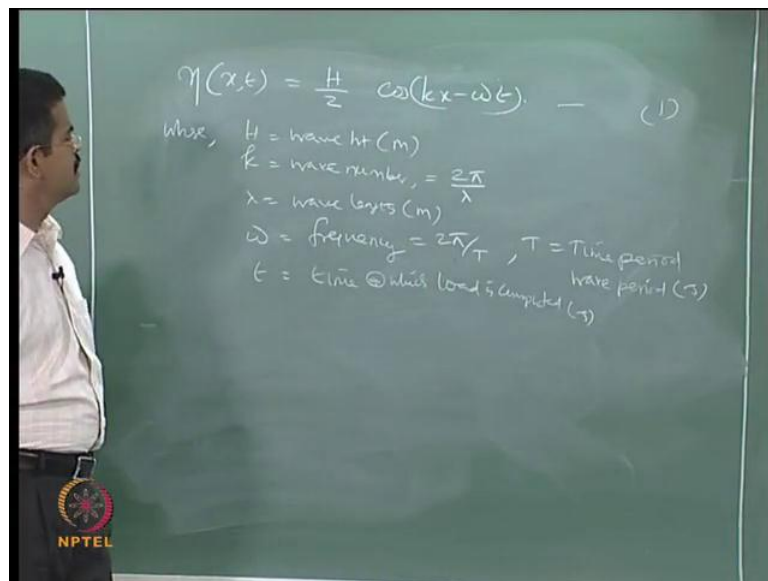 η(x,t) = H/2 cos(kx-ωt). — (1)
where, H = wave ht (m)
k = wave number, = 2π/λ
λ = wave length (m)
ω = frequency = 2π/T, T = Time period
wave period (s)
t = time @ which load is computed (s)
NPTEL